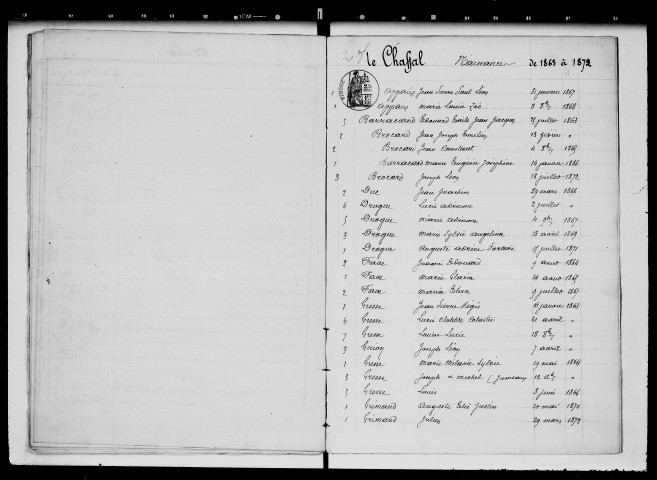 le Chaffal Naissances de 1863 à 1872
1 Appaix Jean Pierre Paul Léon 21 janvier 1867
1 Appaix Marie Louise Zoé 8 8bre 1868
5 Barracand Edouard Emile Jean Jacques 21 juillet 1863
2 Brocard Jean Joseph Emilien 13 février "
2 Brocard Jean Constant 4 1865
1 Barracand Marie Eugénie Joséphine 14 janvier 1866
3 Brocard Joseph Léon 13 juillet 1872
2 Duc Jean Joachim 29 mars 1866
6 Drogue Lucie Adrienne 2 juillet "
5 Drogue Marie Adrienne 4 9bre 1867
3 Drogue Marie Sylvie Angelina 13 avril 1869
1 Drogue Auguste Adrien 17 juillet 1871
2 Fave Edouard 9 août 1864
1 Fave Marie 14 août
2 Fave Maria Elisa 9 juillet
1 Gresse Jean Pierre Régis 16 janvier 1863
4 Gresse Lucie Clotilde Célestie 21 avril "
7 Gresse Louise Lucie 18 8bre "
3 Joseph Léon 7 avril "
1 Gresse Marie Mélanie Sylvie 19 mai 1864
3 Gresse Joseph et Michel (jumeaux) 12 "
5 Gresse Louis 3 juin 1866
1 Grimaud Auguste Elie Justin 20 mai 1870
1 Grimaud Jules 29 mars 1872